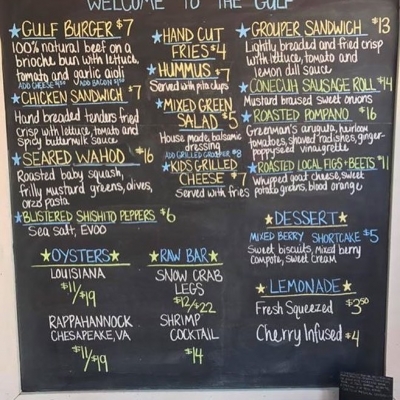 WELCOME TO THE GULF
GULF BURGER $7
100% natural beef on a
brioche bun with lettuce,
tomato and garlic aioli
ADD CHEESE
ADD BACON
CHICKEN SANDWICH $7
Hand breaded tenders fried
crisp with lettuce, tomato and
spicy buttermilk sauce
SEARED WAHOO $16
Roasted baby squash,
frilly mustard greens, olives,
orzo pasta
BLISTERED SHISHITO PEPPERS $6
Sea salt, EVOO
HAND CUT
FRIES $4
HUMMUS $7
Served with pita chips
MIXED GREEN
SALAD $5
House made balsamic
dressing
ADD GRILLED GROUPER $8
KIDS GRILLED
CHEESE $7
Served with fries
GROUPER SANDWICH $13
Lightly breaded and fried crisp
with lettuce, tomato and
lemon dill sauce
CONECUH SAUSAGE ROLL $14
Mustard braised sweet onions
ROASTED POMPANO $16
Greenman's arugula, heirloom
tomatoes, shaved radishes, ginger-
poppyseed vinaigrette
ROASTED LOCAL FIGS + BEETS $11
Whipped goat cheese, sweet
potato grains, blood orange
DESSERT
MIXED BERRY SHORTCAKE $5
Sweet biscuits, mixed berry
compote, sweet cream
OYSTERS
LOUISIANA
$11/$19
RAPPAHANNOCK
CHESAPEAKE, VA
$11/$19
RAW BAR
SNOW CRAB
LEGS
$12/$22
SHRIMP
COCKTAIL
$14
LEMONADE
Fresh Squeezed $3.50
Cherry Infused $4